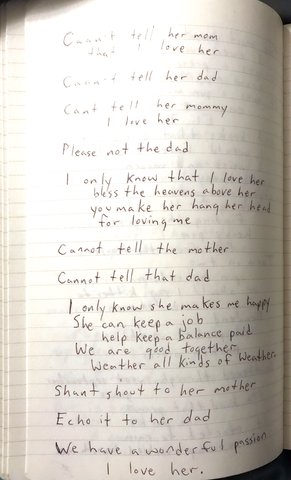 Cannot tell her mom
that I love her
Cannot tell her dad
Cant tell her mommy
I love her
Please not the dad
I only know that I love her
bless the heavens above her
you make her hang her head
for loving me
Cannot tell the mother
Cannot tell that dad
I only know she makes me happy
She can keep a job
help keep a balance paid
We are good together
Weather all kinds of weather.
Shant shout to her mother
Echo it to her dad
We have a wonderful passion
I love her.